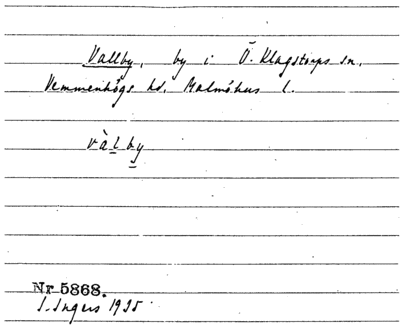 Vallby, by i Ö. Klagstorps sn,
Vemmenhögs hd. Malmöhus l.
vàlby
Nr 5868.
I. Ingers 1935